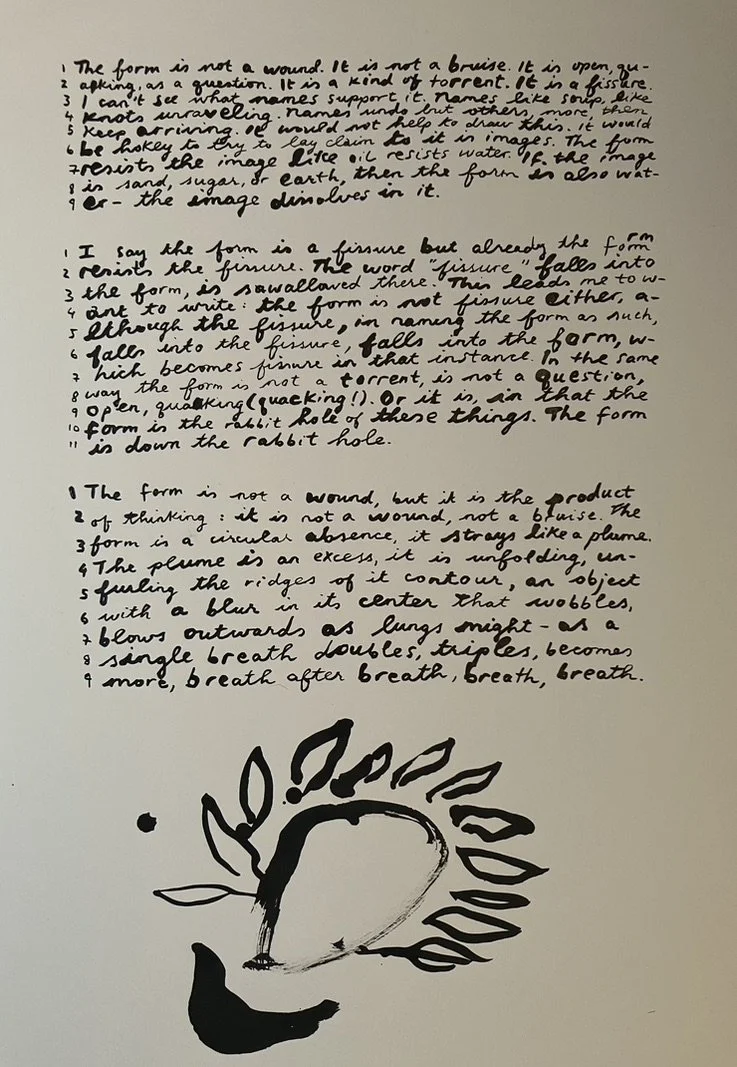 1 The form is not a wound. It is not a bruise. It is open, qu-
2 aking, as a question. It is a kind of torrent. It is a fissure.
3 I can't see what names support it. Names like soup, like
4 knots unraveling. Names undo but others, more, then
5 keep arriving. It would not help to draw this. it would
6 be hokey to try to lay claim to it is images. The form
7 resists the image like oil resists water. If the image
8 is sand, sugar, or earth, then the form is also wat-
9 er - the image dissolves in it.
1 I say the form is a fissure but already the form
2 resists the fissure. The word "fissure" falls into
3 the form, is sawallowed there. This leads me to w-
4 ant to write: the form is not fissure either, a-
5 lthough the fissure, in naming the form as such,
6 falls into the fissure, falls into the form, w-
7 hich becomes fissure in that instance. In the same
8 way the form is not a torrent, is not a question,
9 open, quaking (quacking!). Or it is, in that the
10 form is the rabbit hole of these things. The form
11 is down the rabbit hole.
1 The form is not a wound, but it is the product
2 of thinking: it is not a wound, not a bruise. The
3 form is a circular absence, it strays like a plume.
4 The plume is an excess, it is unfolding, un-
5 furling the ridges of it contour, an object
6 with a blur in its center that wobbles,
7 blows outwards as lungs might - as a
8 single breath doubles, triples, becomes
9 more, breath after breath, breath, breath.